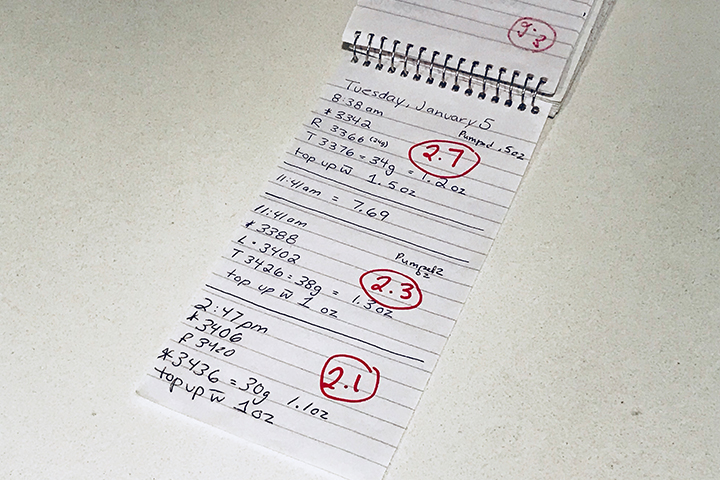 9.3
Tuesday, January 5
8:38am
* 3342 Pumped .5oz
R 3366 (24g) 2.7
T 3376 = 34g = 1.2oz
top up w̄ 1.5oz
11:41am = 7.69
11:41am
* 3388
L • 3402 Pumped 2 oz
T 3426 = 38g = 1.3oz 2.3
top up w̄ 1 oz
2:47pm
*3406
R 3420 2.1
*3436 = 30g 1.1oz
top up w̄ 1oz